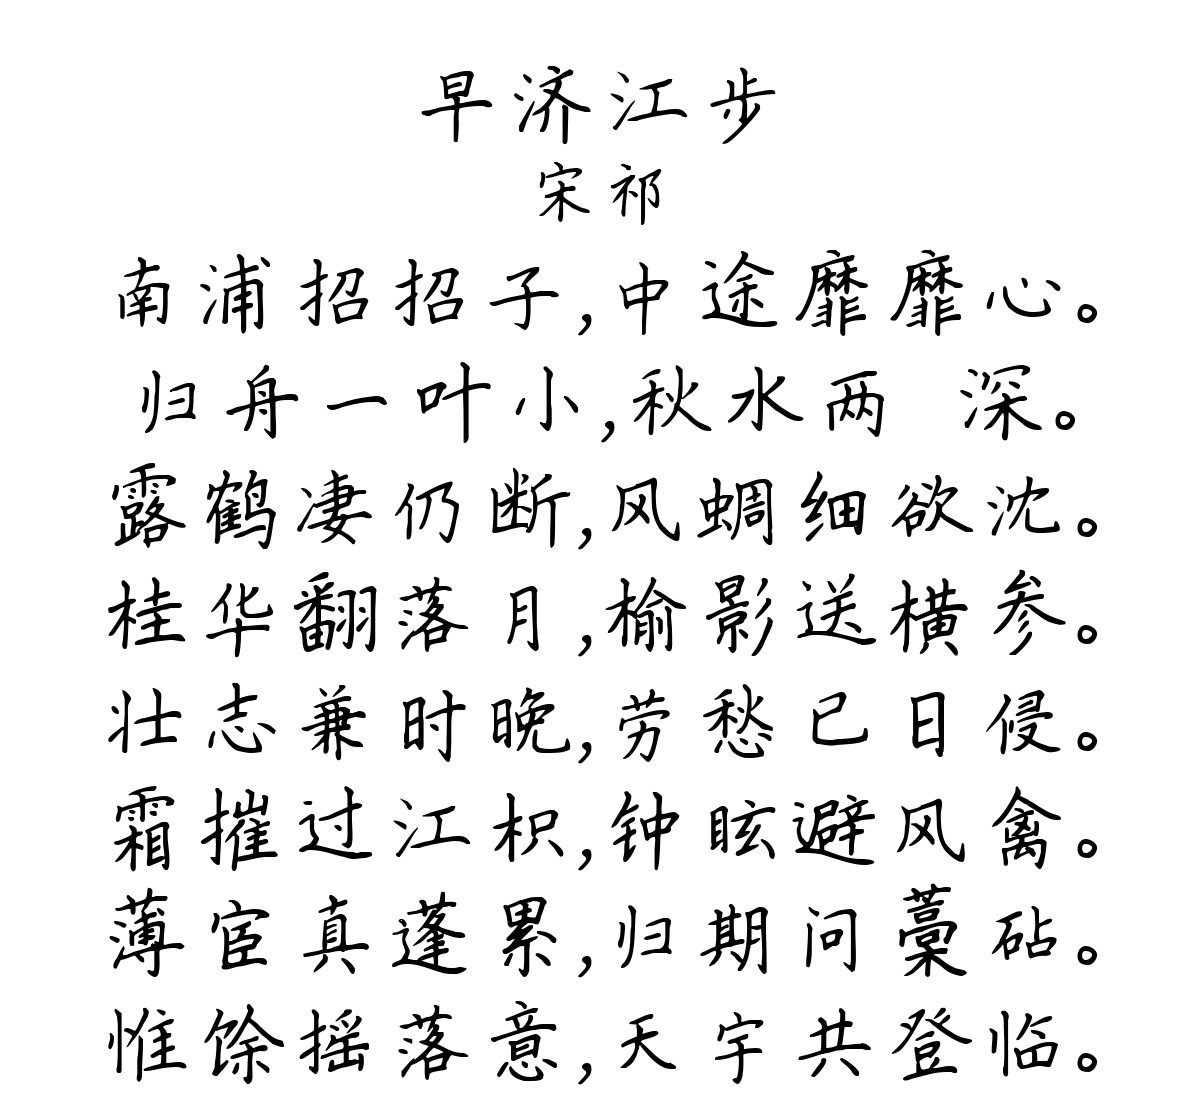 早济江步
宋祁
南浦招招子,中途靡靡心。
归舟一叶小,秋水两 深。
露鹤凄仍断,风蜩细欲沈。
桂华翻落月,榆影送横参。
壮志兼时晚,劳愁已日侵。
霜摧过江枳,钟眩避风禽。
薄宦真蓬累,归期问藁砧。
惟馀摇落意,天宇共登临。